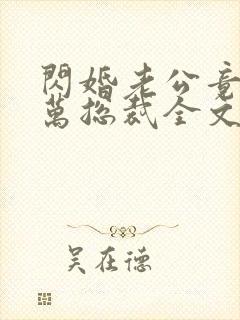 閃婚老公竟
萬總裁全文
吴在德